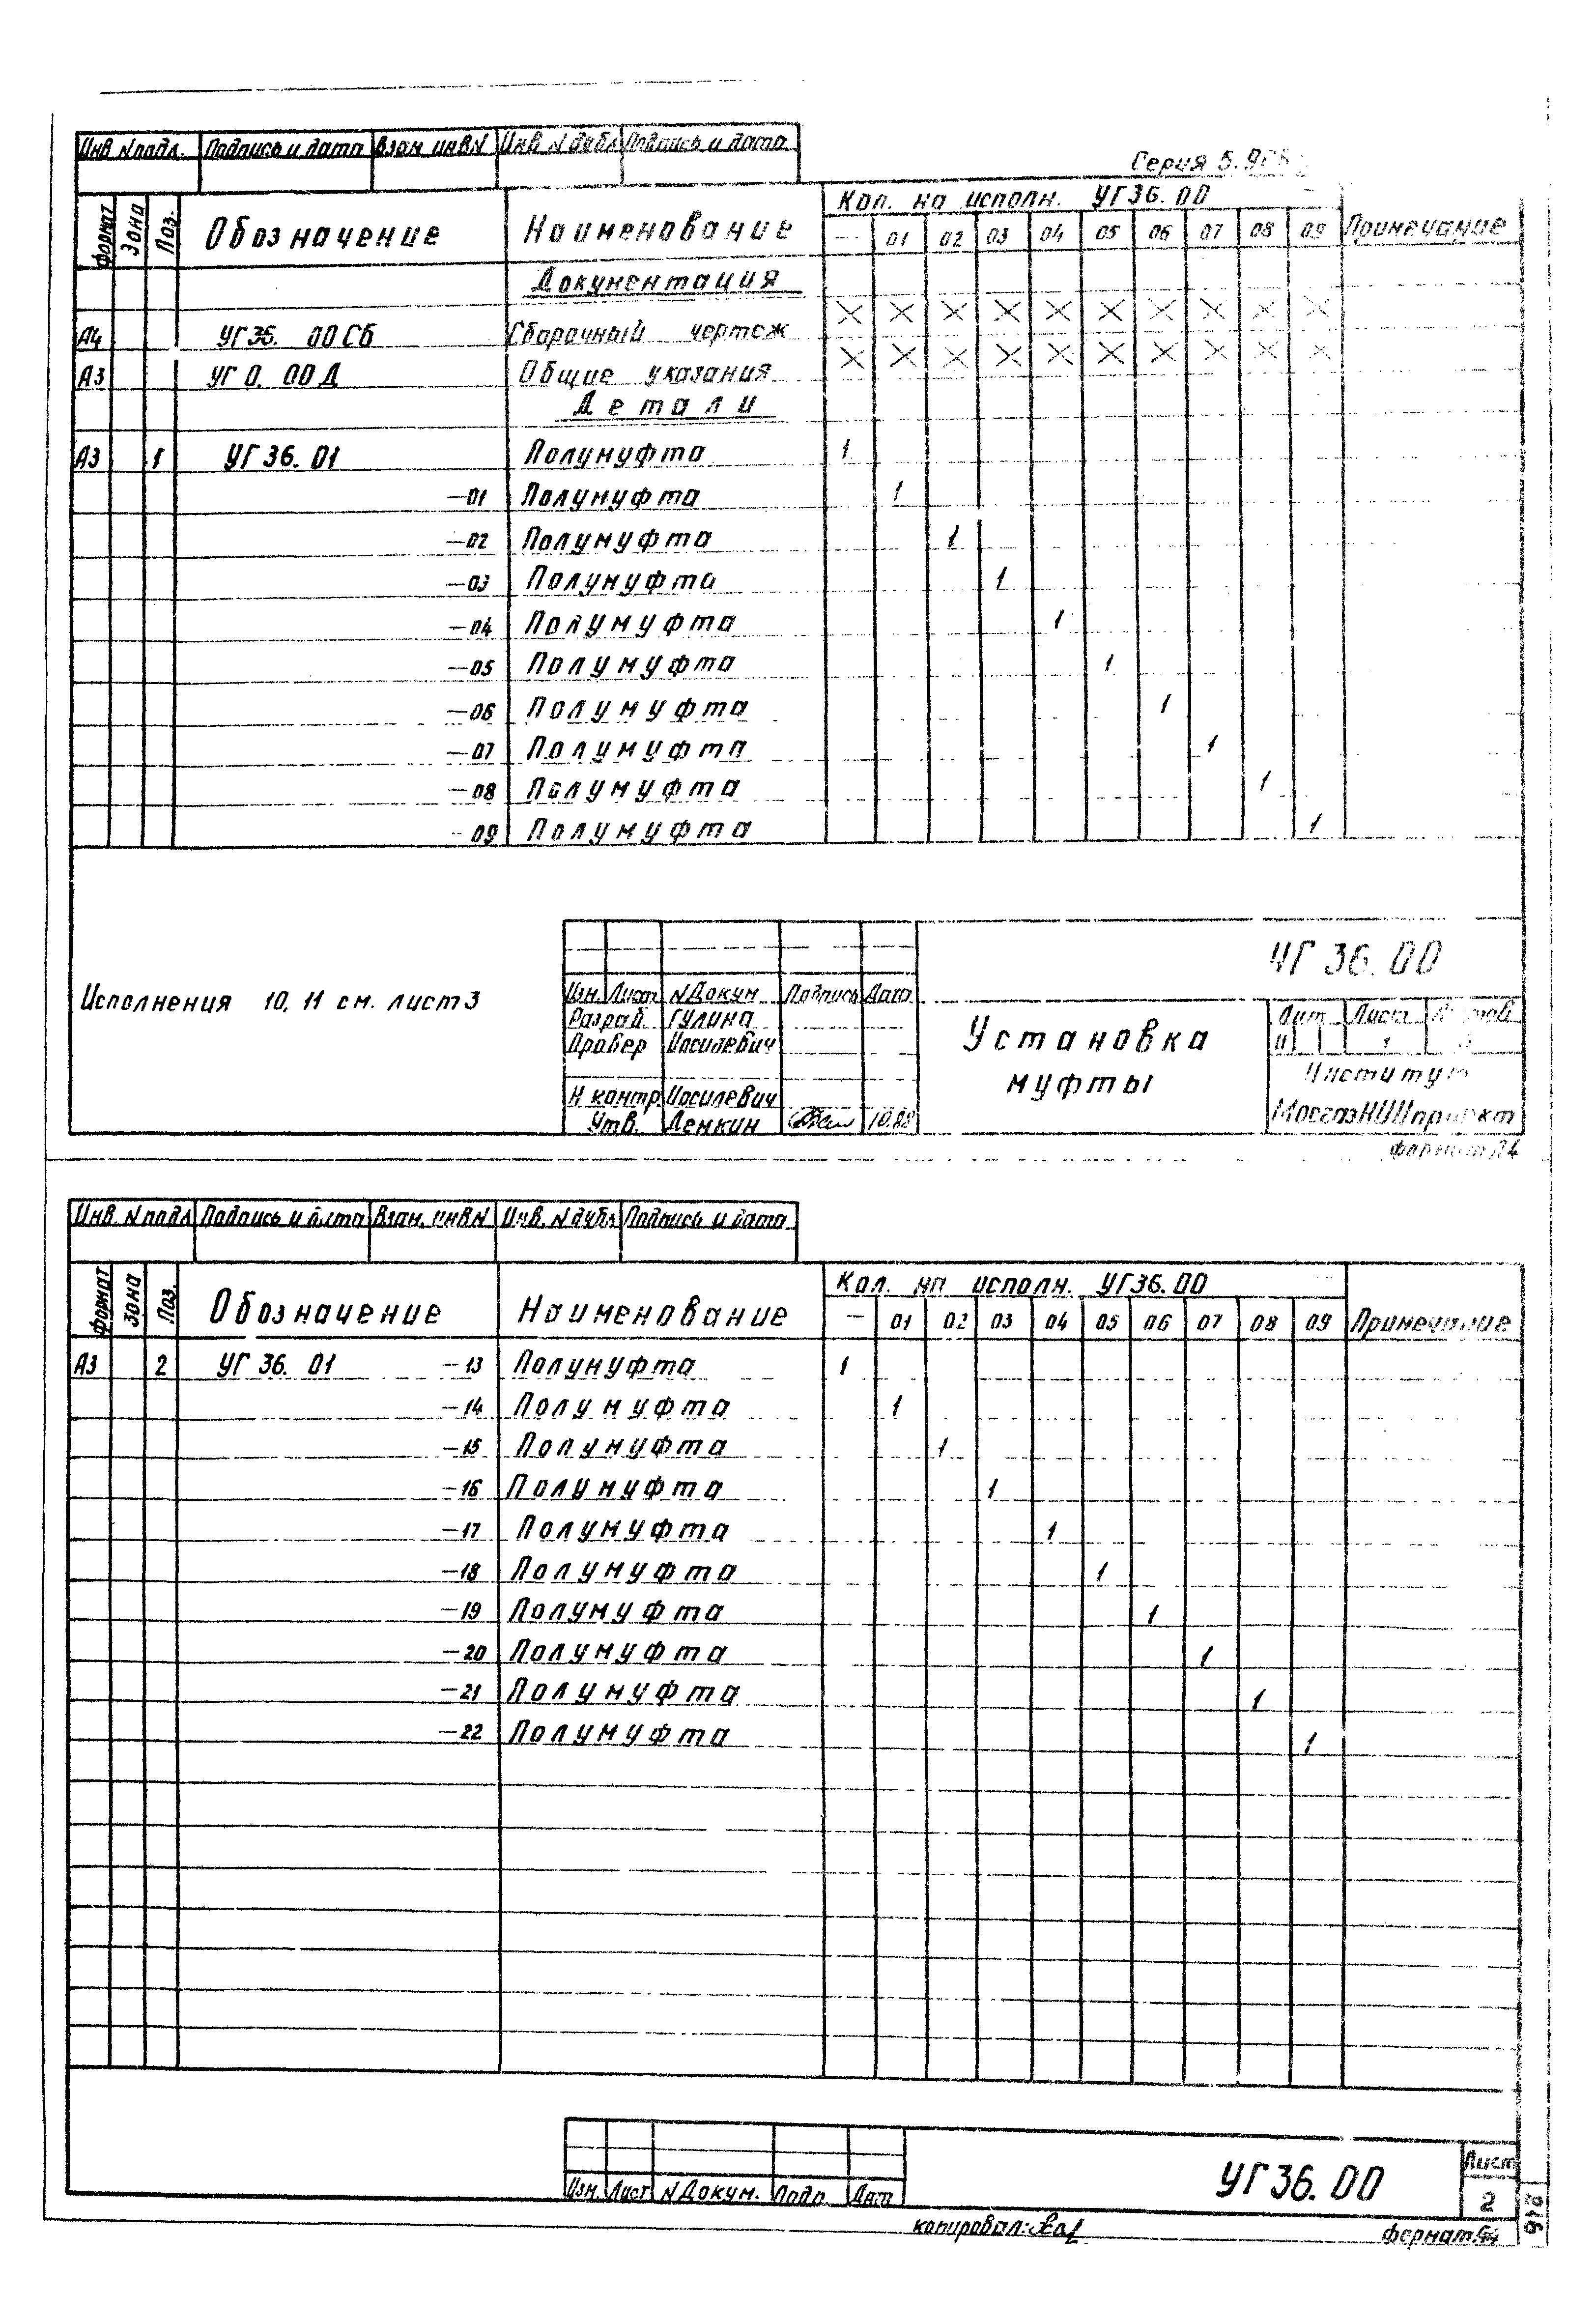 Инв. N подл. Подпись и дата Взам. инв N Инв. N дубл Подпись и дата
Серия 5.905
формат Зона Поз. Обозначение Наименование Кол. на исполн. УГ36.00 Примечание
— 01 02 03 04 05 06 07 08 09
Документация
А4 УГ36. 00 СБ Сборочный чертеж X X X X X X X X X X
А3 УГ 0. 00 Д Общие указания X X X X X X X X X X
Детали
А3 1 УГ 36. 01 Полумуфта 1
—01 Полумуфта 1
—02 Полумуфта 1
—03 Полумуфта 1
—04 Полумуфта 1
—05 Полумуфта 1
—06 Полумуфта 1
—07 Полумуфта 1
—08 Полумуфта 1
—09 Полумуфта 1
УГ 36. 00
Исполнения 10, 11 см. лист 3
Изм. Лист N Докум Подпись Дата
Разраб. Гулина
Провер Иосилевич
Н контр. Иосилевич
Утв. Лемкин 10.88
Установка
муфты
Лит Лист Листов
И 1
Институт
МосгазНИИпроект
формат А4
Инв. N подл Подпись и дата Взам. инв N Инв. N дубл Подпись и дата
формат зона Поз. Обозначение Наименование Кол. на исполн. УГ36.00 Примечание
— 01 02 03 04 05 06 07 08 09
А3 2 УГ 36. 01 —13 Полумуфта 1
—14 Полумуфта 1
—15 Полумуфта 1
—16 Полумуфта 1
—17 Полумуфта 1
—18 Полумуфта 1
—19 Полумуфта 1
—20 Полумуфта 1
—21 Полумуфта 1
—22 Полумуфта 1
Изм. Лист N Докум. Подп. Дата
УГ36.00
Лист
2
копировал:
формат А4